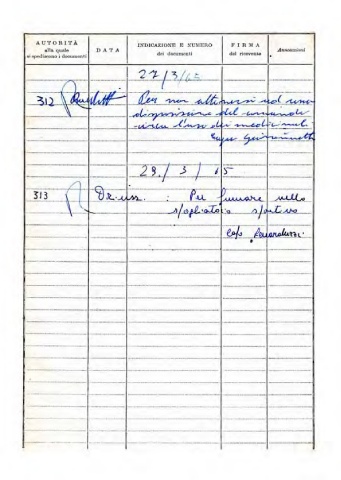 AUTORITÀ
alla quale
si spediscono i documenti
DATA
INDICAZIONE E NUMERO
dei documenti
FIRMA
del ricevente
Annotazioni
27/3/65
312
Per non attenersi ad una
disposizione del comando
circa l'uso dei medicinali
29/3/65
313 : Per fumare nello
spogliatoio sportivo